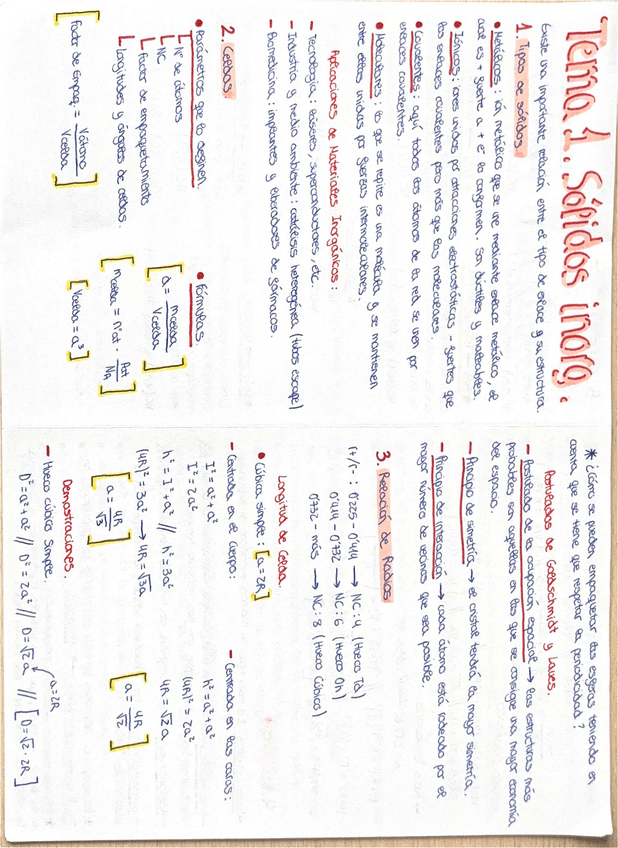 Tema 1. Sólidos inorg.
Existe una importante relación entre el tipo de enlace y su estructura.
1. Tipos de sólidos.
• Metálicos: ión metálico que se une mediante enlace metálico, el
cual es + fuerte a + e⁻ lo conformen. Son dúctiles y maleables.
• Iónicos: iones unidos por atracciones electrostáticas - fuertes que
los enlaces covalentes pero más que las moleculares.
• Covalentes: aquí todos los átomos de la red se unen por
enlaces covalentes.
• Moleculares: lo que se repite es una molécula y se mantienen
entre ellas unidas por fuerzas intermoleculares.
Aplicaciones de Materiales Inorgánicos:
- Tecnología: láseres, superconductores, etc.
- Industria y medio ambiente: catálisis heterogénea (tubos escape)
- Biomedicina: implantes y elaboradores de fármacos.
2. Celdas
• Parámetros que lo definen.
Nº de átomos
NC
Factor de empaquetamiento
Longitudes y ángulos de celdas.
[Factor de Empaq. = Vátomo / Vcelda]
• Fórmulas.
[d = mcelda / Vcelda]
[mcelda = nºat · Pat / NA]
[Vcelda = a³]
* ¿Cómo se pueden empaquetar las esferas teniendo en
cuenta que se tiene que respetar la periodicidad?
Postulados de Goldschmidt y Laves.
- Postulado de la ocupación espacial → las estructuras más
probables son aquellas en las que se consigue una mayor economía
del espacio.
- Principio de simetría → el cristal tendrá la mayor simetría.
- Principio de interacción → cada átomo está rodeado por el
mayor número de vecinos que sea posible.
3. Relación de Radios
r+/r- : 0'225 - 0'414 → NC: 4 (Hueco Td)
0'414 - 0'732 → NC: 6 (Hueco Oh)
0'732 - más → NC: 8 (Hueco Cúbico)
Longitud de Celda.
• Cúbica simple: [a = 2R]
- Centrada en el cuerpo:
I² = a² + a²
I² = 2a²
h² = I² + a² // h² = 3a²
(4R)² = 3a² → 4R = √3a
[a = 4R / √3]
- Centrada en las caras:
h² = a² + a²
(4R)² = 2a²
4R = √2 a
[a = 4R / √2]
Demostraciones.
- Hueco cúbico simple.
a = 2R
D² = a² + a² // D² = 2a² // D = √2 a // [D = √2 · 2R]